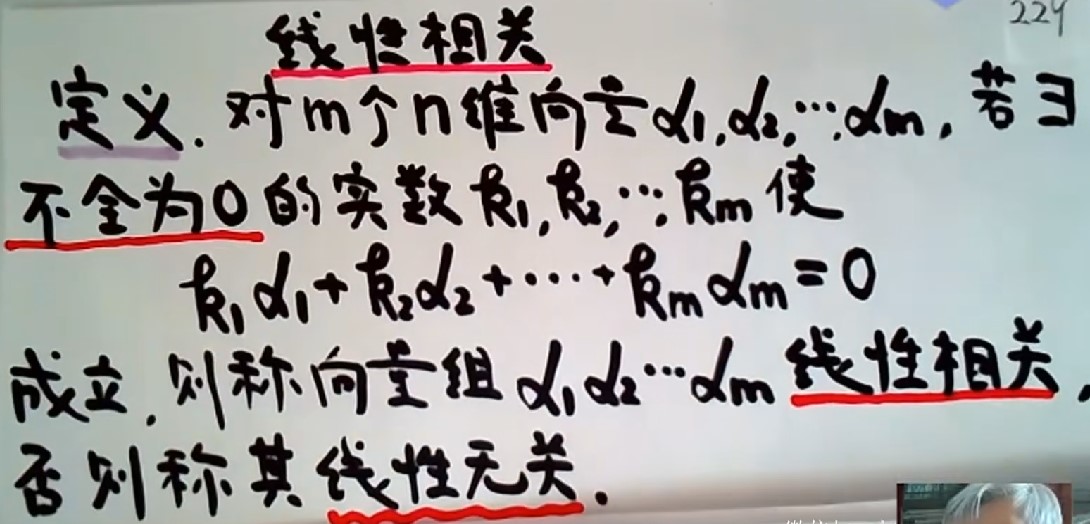 229
线性相关
定义. 对m个n维向量α1,α2,…,αm, 若∃
不全为0的实数k1,k2,…,km使
k1α1+k2α2+…+kmαm=0
成立, 则称向量组α1α2…αm线性相关,
否则称其线性无关.